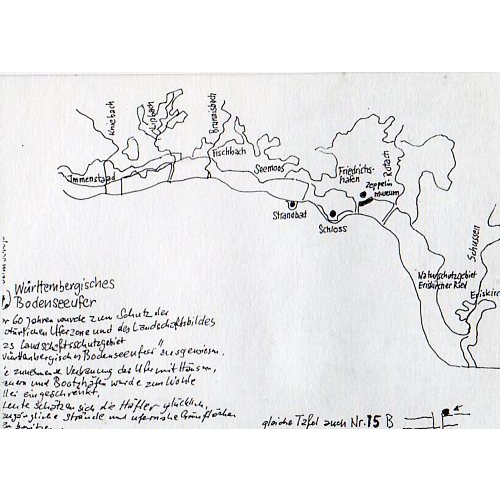 Kniebach
Lipbach
Brunnisbach
Immenstaad
Fischbach
Seemoos
Friedrichs-
hafen
Rotach
Zeppelin
museum
Strandbad
Schloss
Schussen
Naturschutzgebiet
Eriskircher Ried
Eriskirc
Württembergisches
Bodenseeufer
60 Jahren wurde zum Schutz der
Uferzone und des Landschaftsbildes
Landschaftsschutzgebiet
Württembergisches Bodenseeufer" ausgewiesen,
zunehmende Verbauung des Ufers mit Häusern,
und Bootshäfen wurde zum Wohle
eingeschränkt.
Heute schätzen sich die Häfler glücklich,
zugängliche Strände und ufernahe Grünflächen
gleiche Tafel auch Nr. 15 B